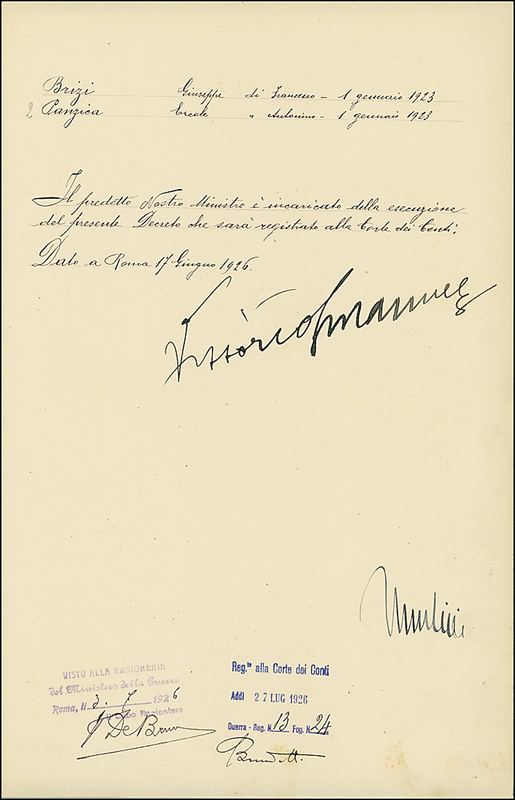 Brizi Giuseppe di Francesco - 1 gennaio 1923
2 Panzica Ercole " Antonino - 1 gennaio 1923
Il predetto Nostro Ministro è incaricato della esecuzione
del presente Decreto che sarà registrato alla Corte dei Conti.
Dato a Roma 17 Giugno 1926.
Vittorio Emanuele
VISTO ALLA RAGIONERIA
del Ministero della Guerra
Roma, li 3. 7 1926
Reg.to alla Corte dei Conti
Addì 27 LUG 1926
Guerra - Reg. N. 13 Fog. N. 24